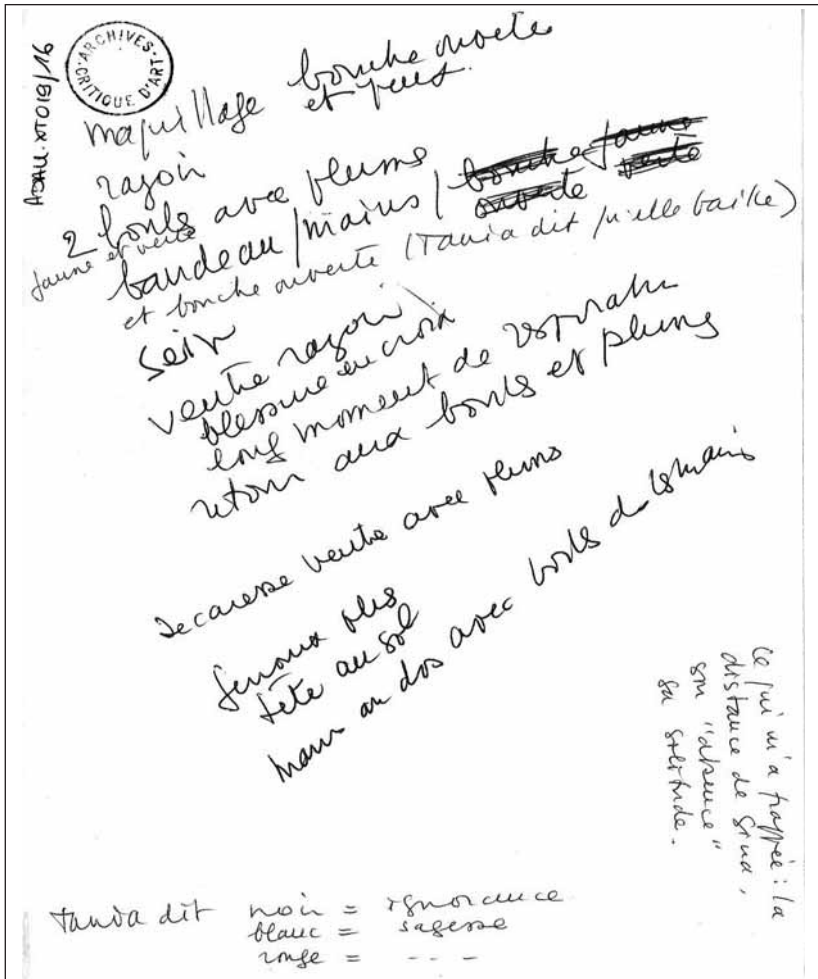 ARCHIVES·CRITIQUE D'ART
maquillage bouche ouverte
et yeux.
rasoir
2 bouls avec plumes
jaune et verte
bandeau / mains / bouche jaune
ouverte verte
et bouche ouverte (Tania dit qu'elle baille)
sein
ventre rasoir
blessure en croix
long moment de respiration
retour aux bouls et plumes
se caresse ventre avec plumes
genoux pliés
tête au sol
main au dos avec bouls ds les mains
Ce qui m'a frappée : la
distance de Gina,
son "absence"
sa solitude.
Tania dit noir = ignorance
blanc = sagesse
rouge = - - -